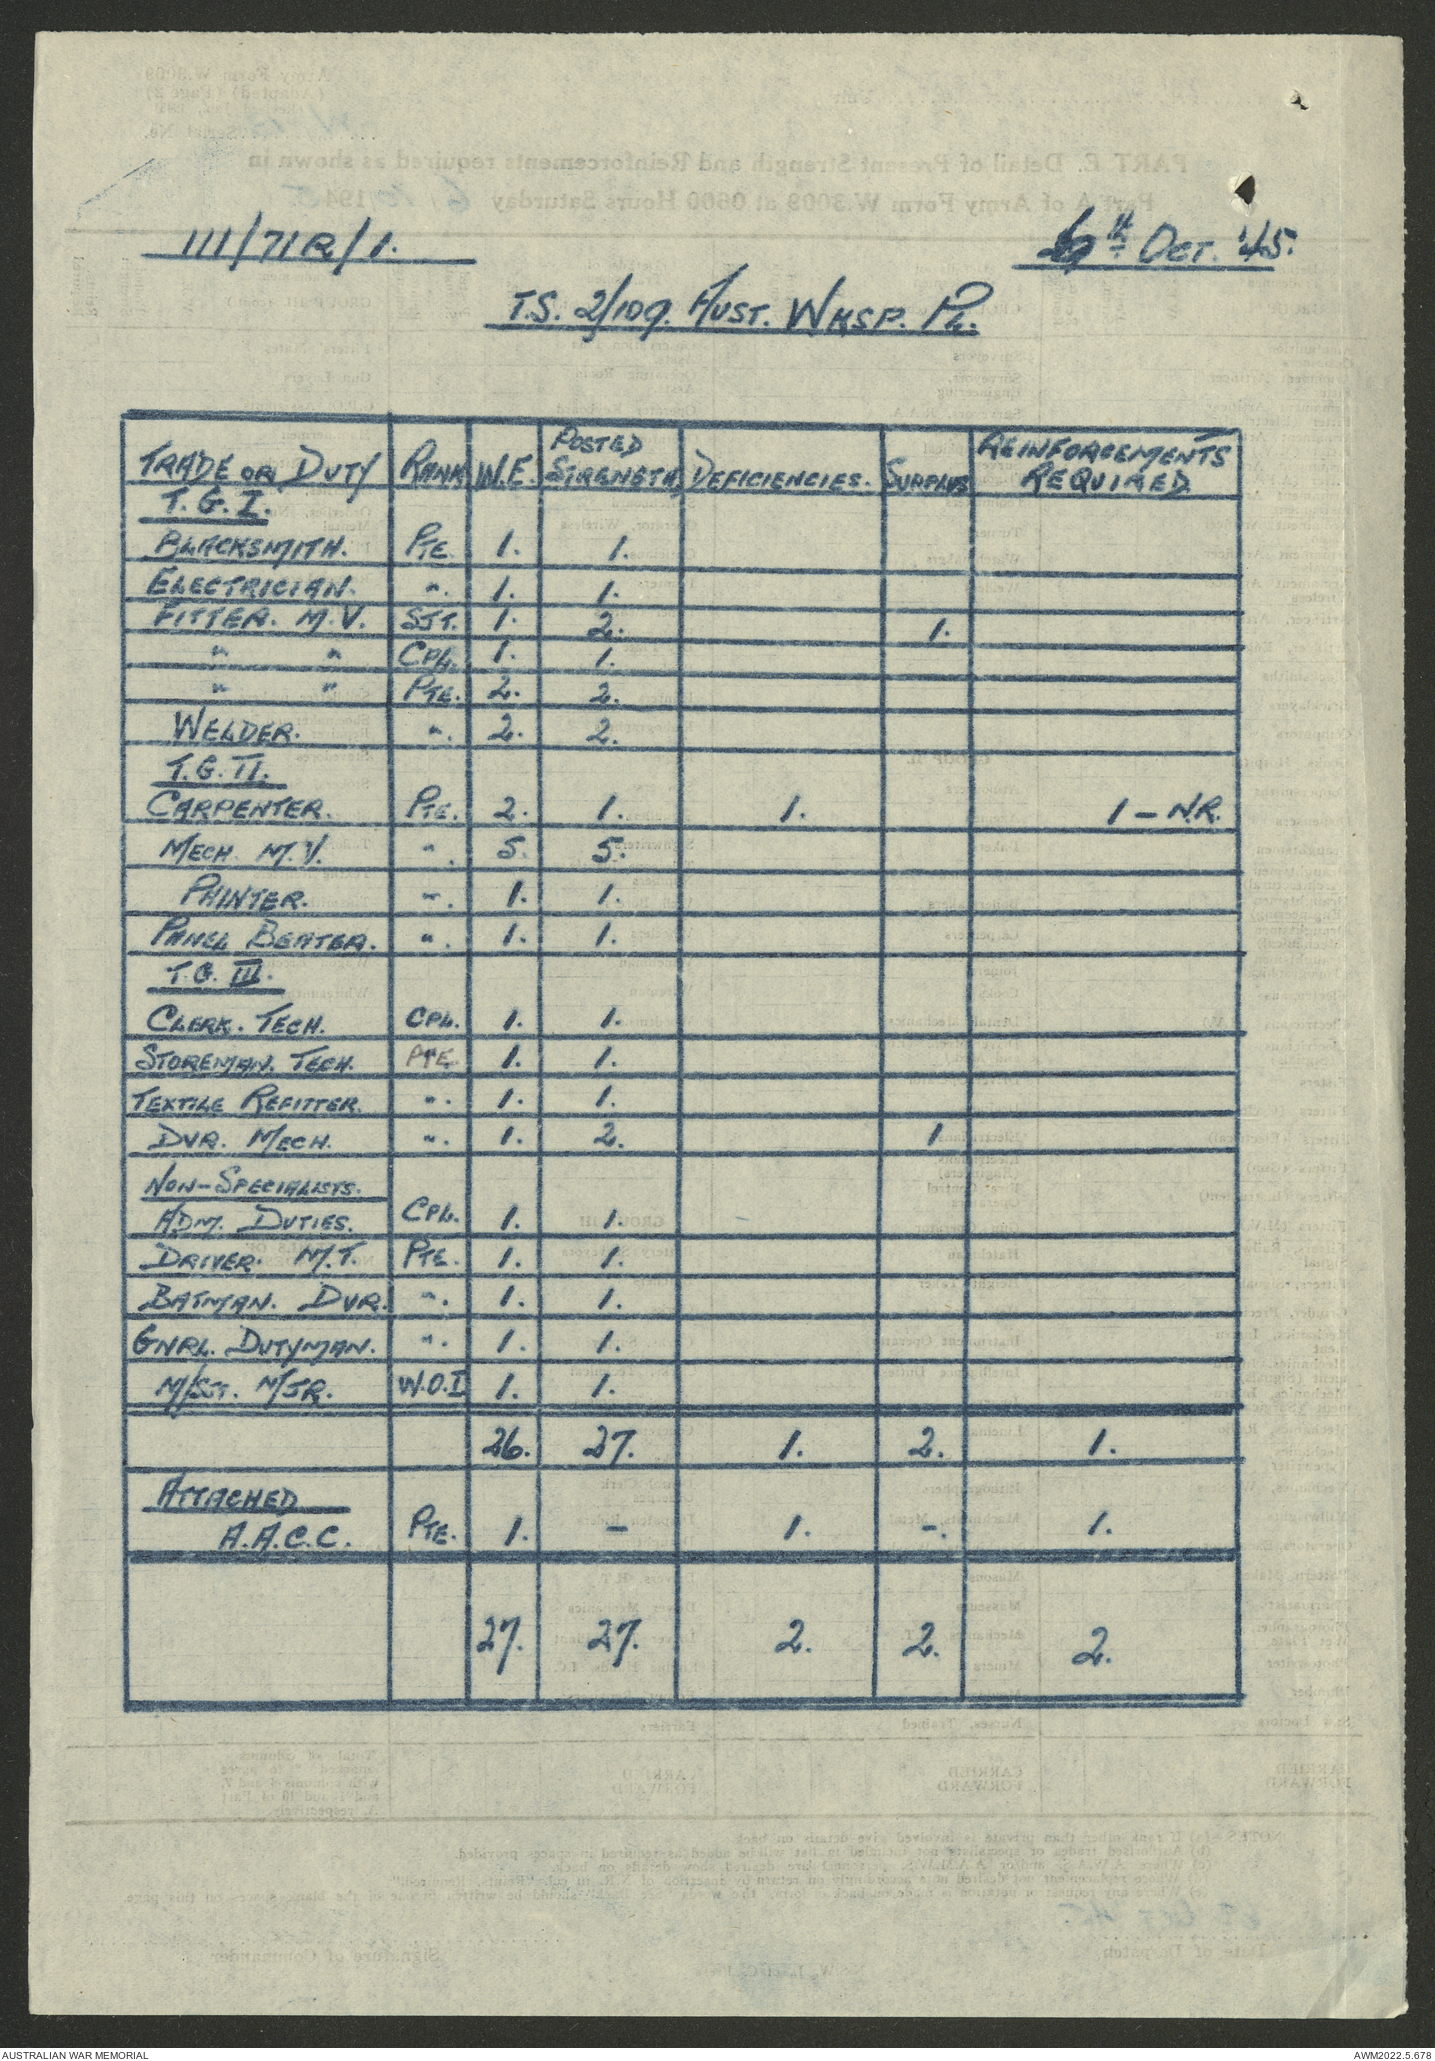 111/71R/1.
6th OCT. '45.
T.S. 2/109. AUST. WKSP. PL.
TRADE OR DUTY RANK W.E. POSTED STRENGTH DEFICIENCIES. SURPLUS REINFORCEMENTS REQUIRED
T.G.I.
BLACKSMITH. PTE. 1. 1.
ELECTRICIAN. ". 1. 1.
FITTER. M.V. SJT. 1. 2. 1.
" " CPL. 1. 1.
" " PTE. 2. 2.
WELDER. ". 2. 2.
T.G. II.
CARPENTER. PTE. 2. 1. 1. 1 - N.R.
MECH. M.V. ". 5. 5.
PAINTER. ". 1. 1.
PANEL BEATER. ". 1. 1.
T.G. III.
CLERK. TECH. CPL. 1. 1.
STOREMAN. TECH. PTE. 1. 1.
TEXTILE REFITTER. ". 1. 1.
DVR. MECH. ". 1. 2. 1
NON-SPECIALISTS.
ADM. DUTIES. CPL. 1. 1.
DRIVER. M.T. PTE. 1. 1.
BATMAN. DVR. ". 1. 1.
GNRL. DUTYMAN. ". 1. 1.
M/SJT. MJR. W.O.I 1. 1.
26. 27. 1. 2. 1.
ATTACHED
A.A.C.C. PTE. 1. - 1. -. 1.
27. 27. 2. 2. 2.
AUSTRALIAN WAR MEMORIAL
AWM2022.5.678